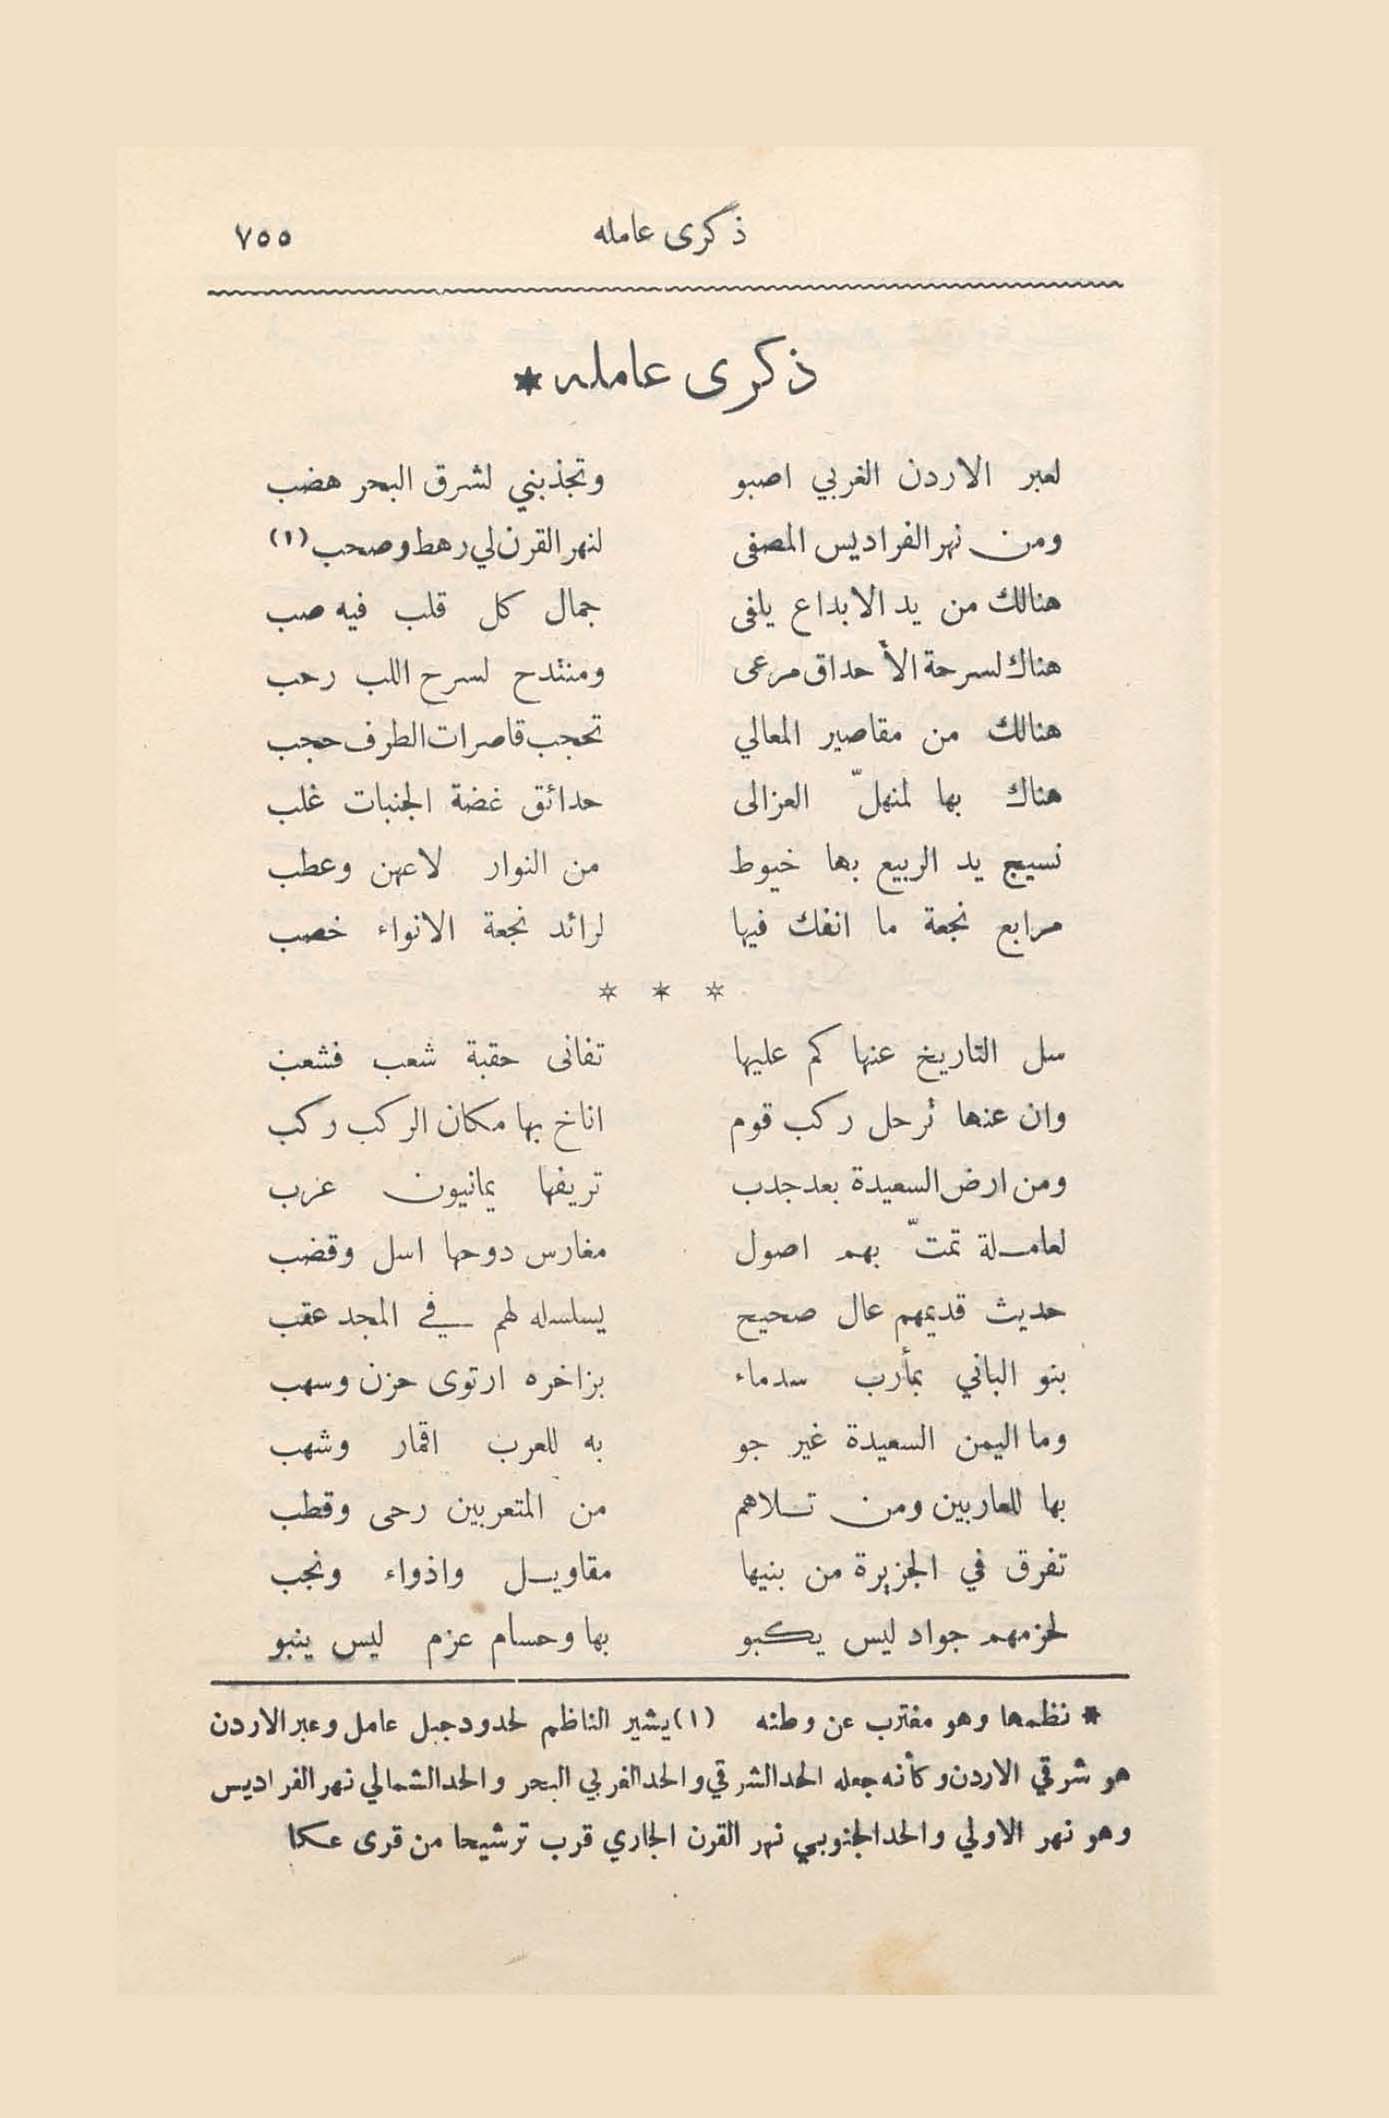 ذكرى عامله ٧٥٥
ذكرى عامله *
لعبر الاردن الغربي اصبو وتجذبني لشرق البحر هضب
ومن نهر الفراديس المصفى لنهر القرن لي رهط وصحب (١)
هنالك من يد الابداع يلفى جمال كل قلب فيه صب
هناك لسرحة الأحداق مرعى ومنتدح لسرح اللب رحب
هنالك من مقاصير المعالي تحجب قاصرات الطرف حجب
هناك بها لمنهلّ العزالى حدائق غضة الجنبات غلب
نسيج يد الربيع بها خيوط من النوار لاعهن وعطب
مرابع نجعة ما انفك فيها لرائد نجعة الانواء خصب
* * *
سل التاريخ عنها كم عليها تفانى حقبة شعب فشعب
وان عنها ترحل ركب قوم اناخ بها مكان الركب ركب
ومن ارض السعيدة بعد جدب تريفها يمانيون عرب
لعاملة تمتّ بهم اصول مغارس دوحها اسل وقضب
حديث قديمهم عال صحيح يسلسله لهم في المجد عقب
بنو الباني بمأرب سدماء بزاخره ارتوى حزن وسهب
وما اليمن السعيدة غير جو به للعرب اقمار وشهب
بها للعاربين ومن تلاهم من المتعربين رحى وقطب
تفرق في الجزيرة من بنيها مقاويل واذواء ونجب
لحزمهم جواد ليس يكبو بها وحسام عزم ليس ينبو
* نظمها وهو مغترب عن وطنه (١) يشير الناظم لحدود جبل عامل وعبر الاردن
هو شرقي الاردن وكأنه جعله الحد الشرقي والحد الغربي البحر والحد الشمالي نهر الفراديس
وهو نهر الاولي والحد الجنوبي نهر القرن الجاري قرب ترشيحا من قرى عكا